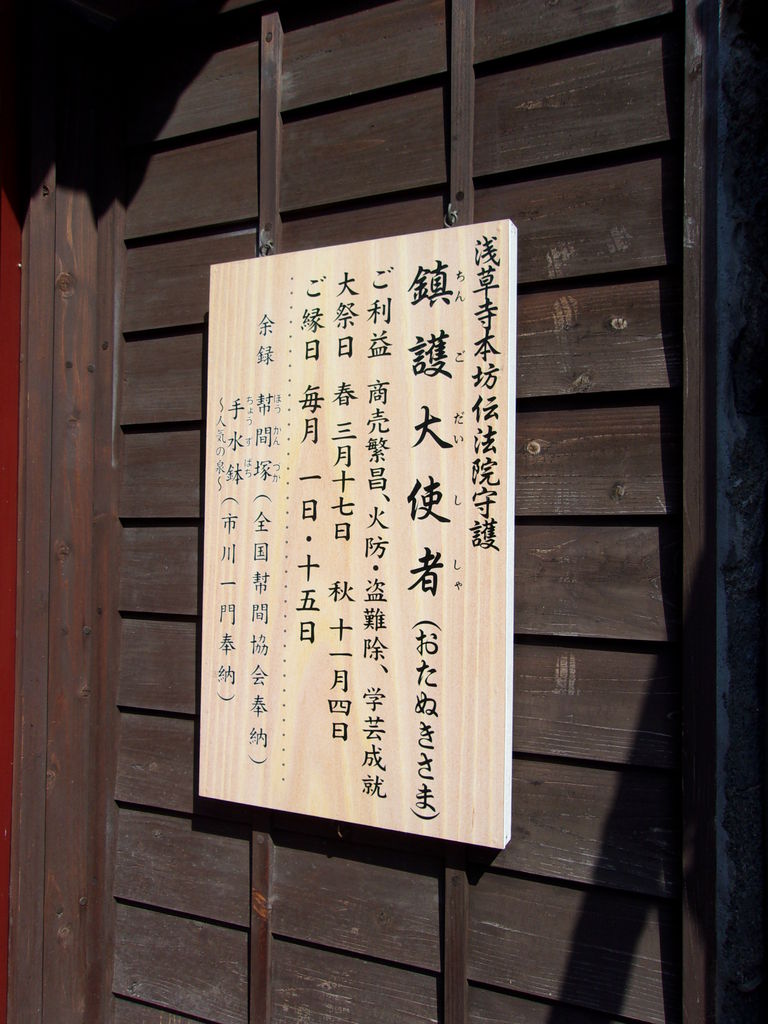 浅草寺本坊伝法院守護
鎮護大使者(おたぬきさま)
ちんごだいししゃ
ご利益 商売繁昌、火防・盗難除、学芸成就
大祭日 春 三月十七日 秋 十一月四日
ご縁日 毎月 一日・十五日
余録 幇間塚(全国幇間協会奉納)
ほうかんづか
手水鉢(市川一門奉納)
ちょうずばち
~人気の泉~